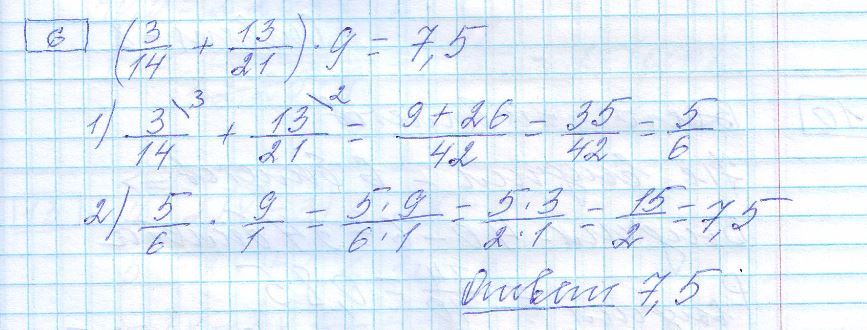 6 (3/14 + 13/21) · 9 = 7,5
1) 3/14 \3 + 13/21 \2 = 9+26/42 = 35/42 = 5/6
2) 5/6 · 9/1 = 5·9/6·1 = 5·3/2·1 = 15/2 = 7,5
Ответ 7,5